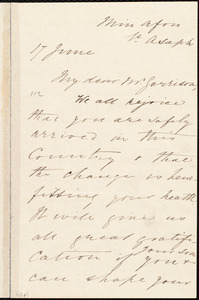 Min afon
St. Asaph
17 June
My dear Mr Garrison,
We all rejoice
that you are safely
arrived in this
Country & that
the change is bene-
fitting your health
It will give us
all great gratifi-
cation if you &
your son
can shape your